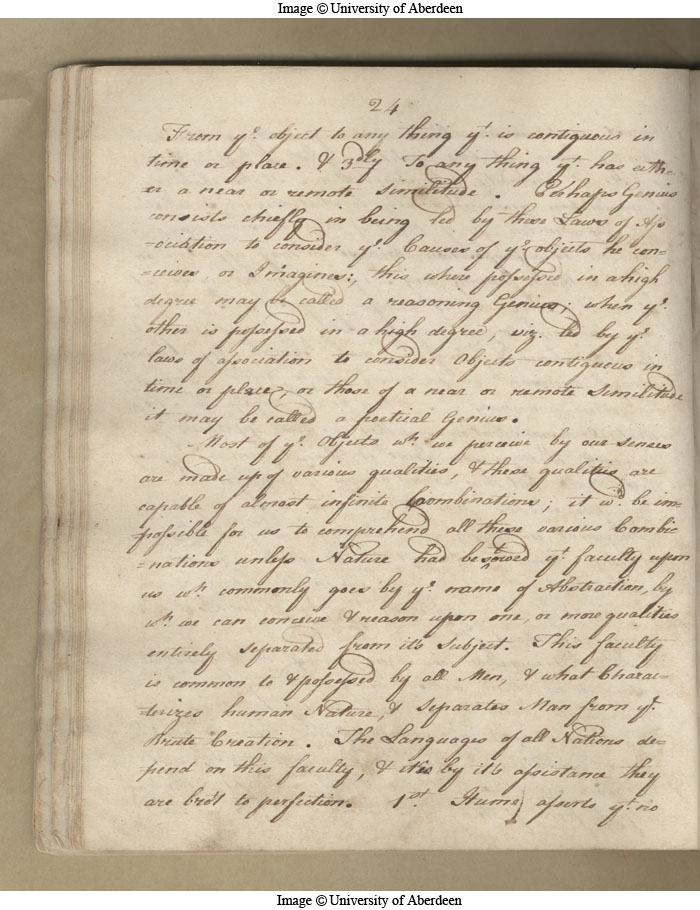 Image © University of Aberdeen
24
From yᵉ. object to any thing yᵗ. is contiguous in
time or place. & 3dly To any thing yᵗ. has eith-
er a near or remote similitude. Perhaps Genius
consists chiefly in being led by these Laws of Aſs
=ociation to consider yᵉ. Causes of yᵉ. objects he con=
=ceives, or Imagines:, this when poſseſsed in a high
degree may be called a reasoning Genius; when yᵉ.
other is poſseſsed in a high degree, viz. led by yᵉ.
laws of aſsociation to consider Objects contiguous in
time or place, or those of a near or remote Similitude
it may be called a poetical Genius.
Most of yᵉ. Objects wʰ. we perceive by our senses
are made up of various qualities, & these qualities are
capable of almost infinite Combinations; it wᵈ. be im-
poſsible for us to comprehend all these various Combi=
=nations unleſs Nature had bestowed yᵉ. faculty upon
us wʰ. commonly goes by yᵉ. name of Abstraction, by
wʰ. we can conceive & reason upon one, or more qualities
entirely separated from it's Subject. This faculty
is common to & poſseſsed by all Men, & what Charac-
=terizes human Nature, & separates Man from yᵉ.
Brute Creation. The Languages of all Nations de=
pend on this faculty, & it is by it's aſsistance they
are bro't to perfection. 1st. Hume aſserts yᵗ. no
Image © University of Aberdeen